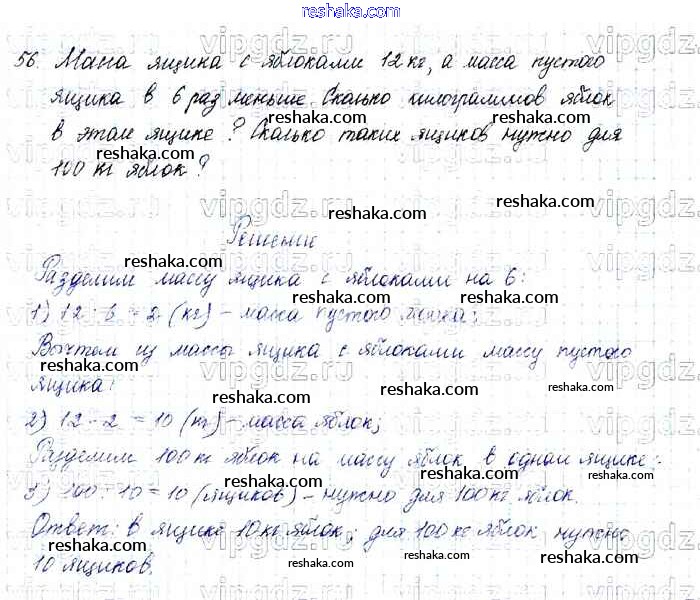 56. Масса ящика с яблоками 12 кг, а масса пустого
ящика в 6 раз меньше. Сколько килограммов яблок
в этом ящике? Сколько таких ящиков нужно для
100 кг яблок?
Решение
Разделим массу ящика с яблоками на 6:
1) 12 : 6 = 2 (кг) - масса пустого ящика;
Вычтем из массы ящика с яблоками массу пустого
ящика:
2) 12 - 2 = 10 (кг) - масса яблок;
Разделим 100 кг яблок на массу яблок в одном ящике:
3) 100 : 10 = 10 (ящиков) - нужно для 100 кг яблок.
Ответ: в ящике 10 кг яблок; для 100 кг яблок нужно
10 ящиков.
reshaka.com
vipgdz.ru